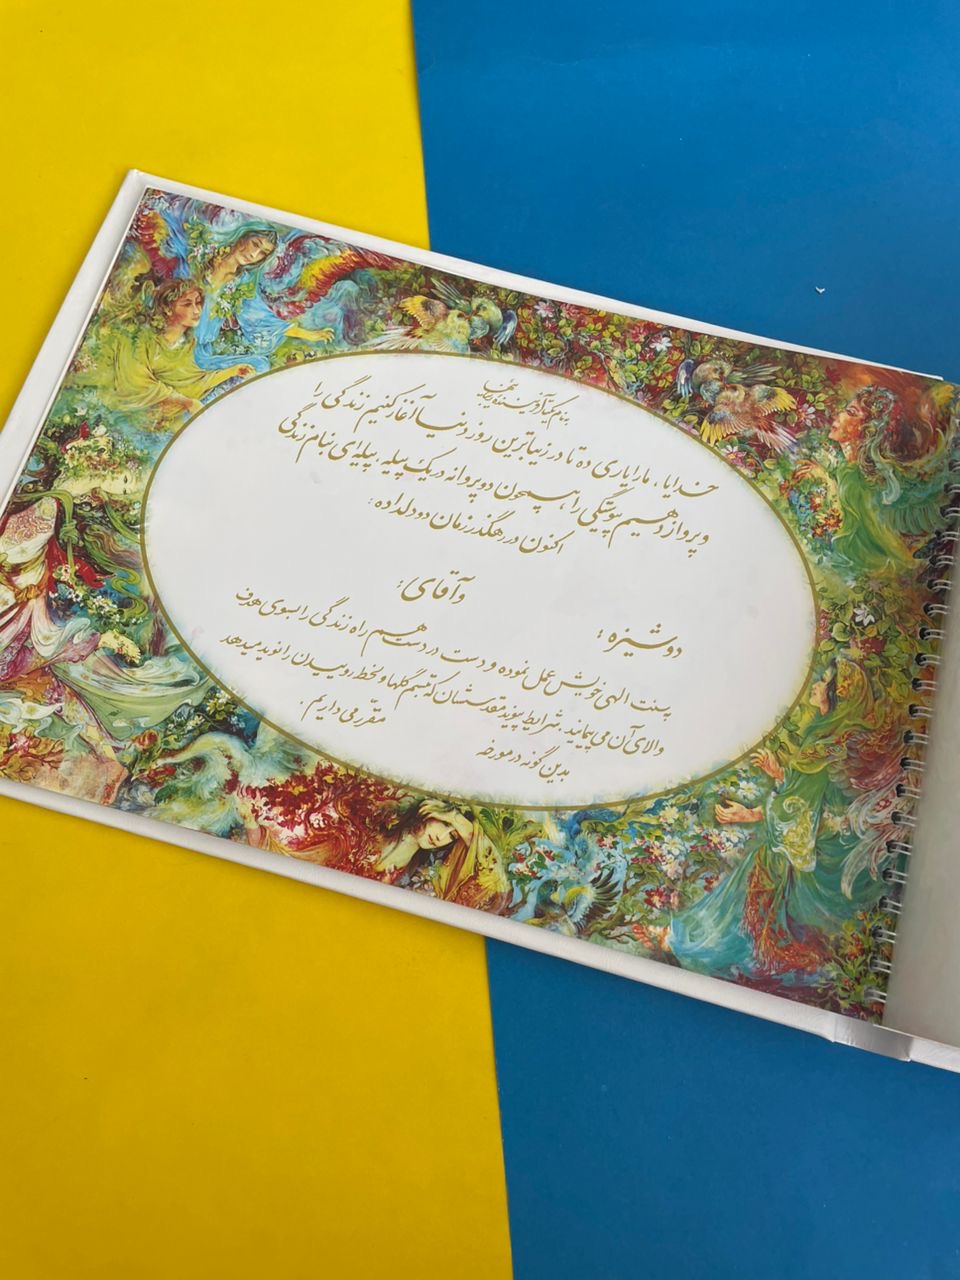 بنام یکتا آفریننده زیبائیها
خدایا، ما را یاری ده تا در زیباترین روز دنیا آغاز کنیم زندگی را
و پرواز دهیم پیوستگی را، همچون دو پروانه در یک پیله، پیله‌ای بنام زندگی
اکنون در رهگذر زمان دو دلداده :
دوشیزه : و آقای :
بسنت الهی خویش عمل نموده و دست در دست هم راه زندگی را بسوی هدف
والای آن می پیمایند. شرایط پیوند مقدسشان که تبسم گلها و لحظه روییدن را نوید میدهد
بدین گونه در مورخه مقرر می داریم.